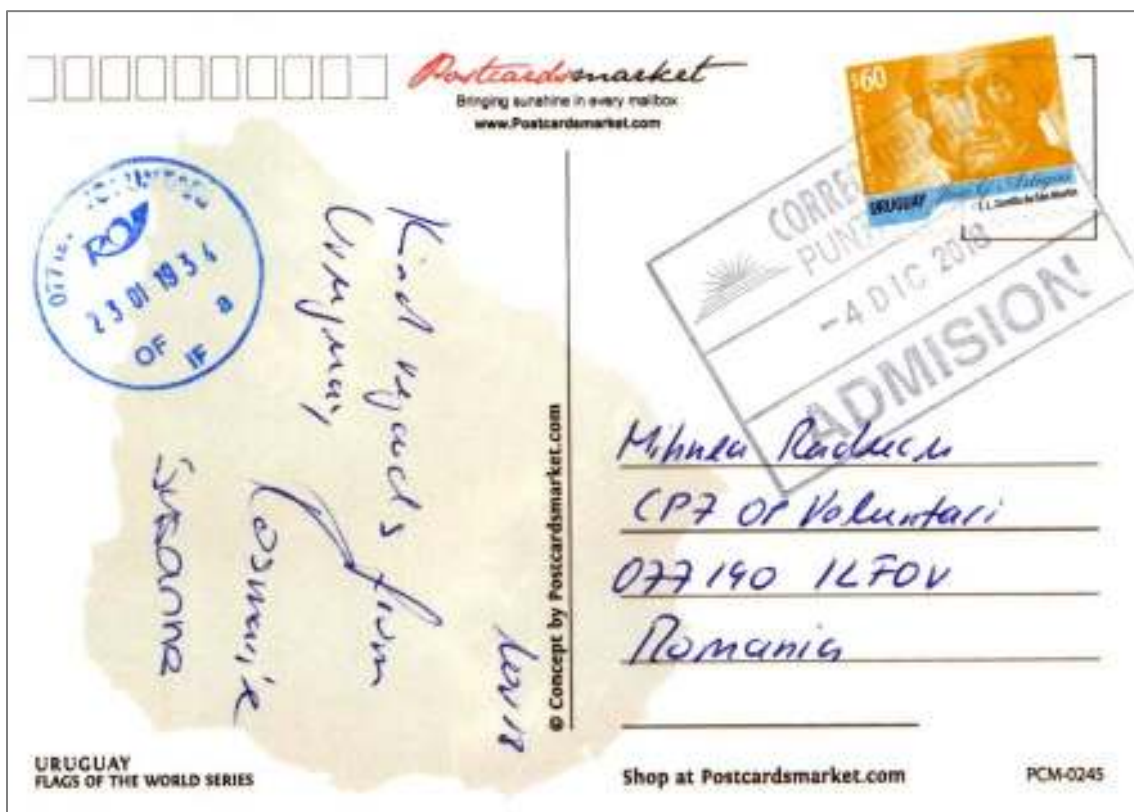 Postcardsmarket
Bringing sunshine in every mailbox
www.Postcardsmarket.com
$60
URUGUAY
CORRE
PUN
- 4 DIC 2018
ADMISION
23 01 19 3 4
OF IF a
Kind regards from
Uruguay,
Susanna
Nov 18
© Concept by Postcardsmarket.com
Mihnea Raducu
CP7 OP Voluntari
077190 ILFOV
Romania
URUGUAY
FLAGS OF THE WORLD SERIES
Shop at Postcardsmarket.com
PCM-0245